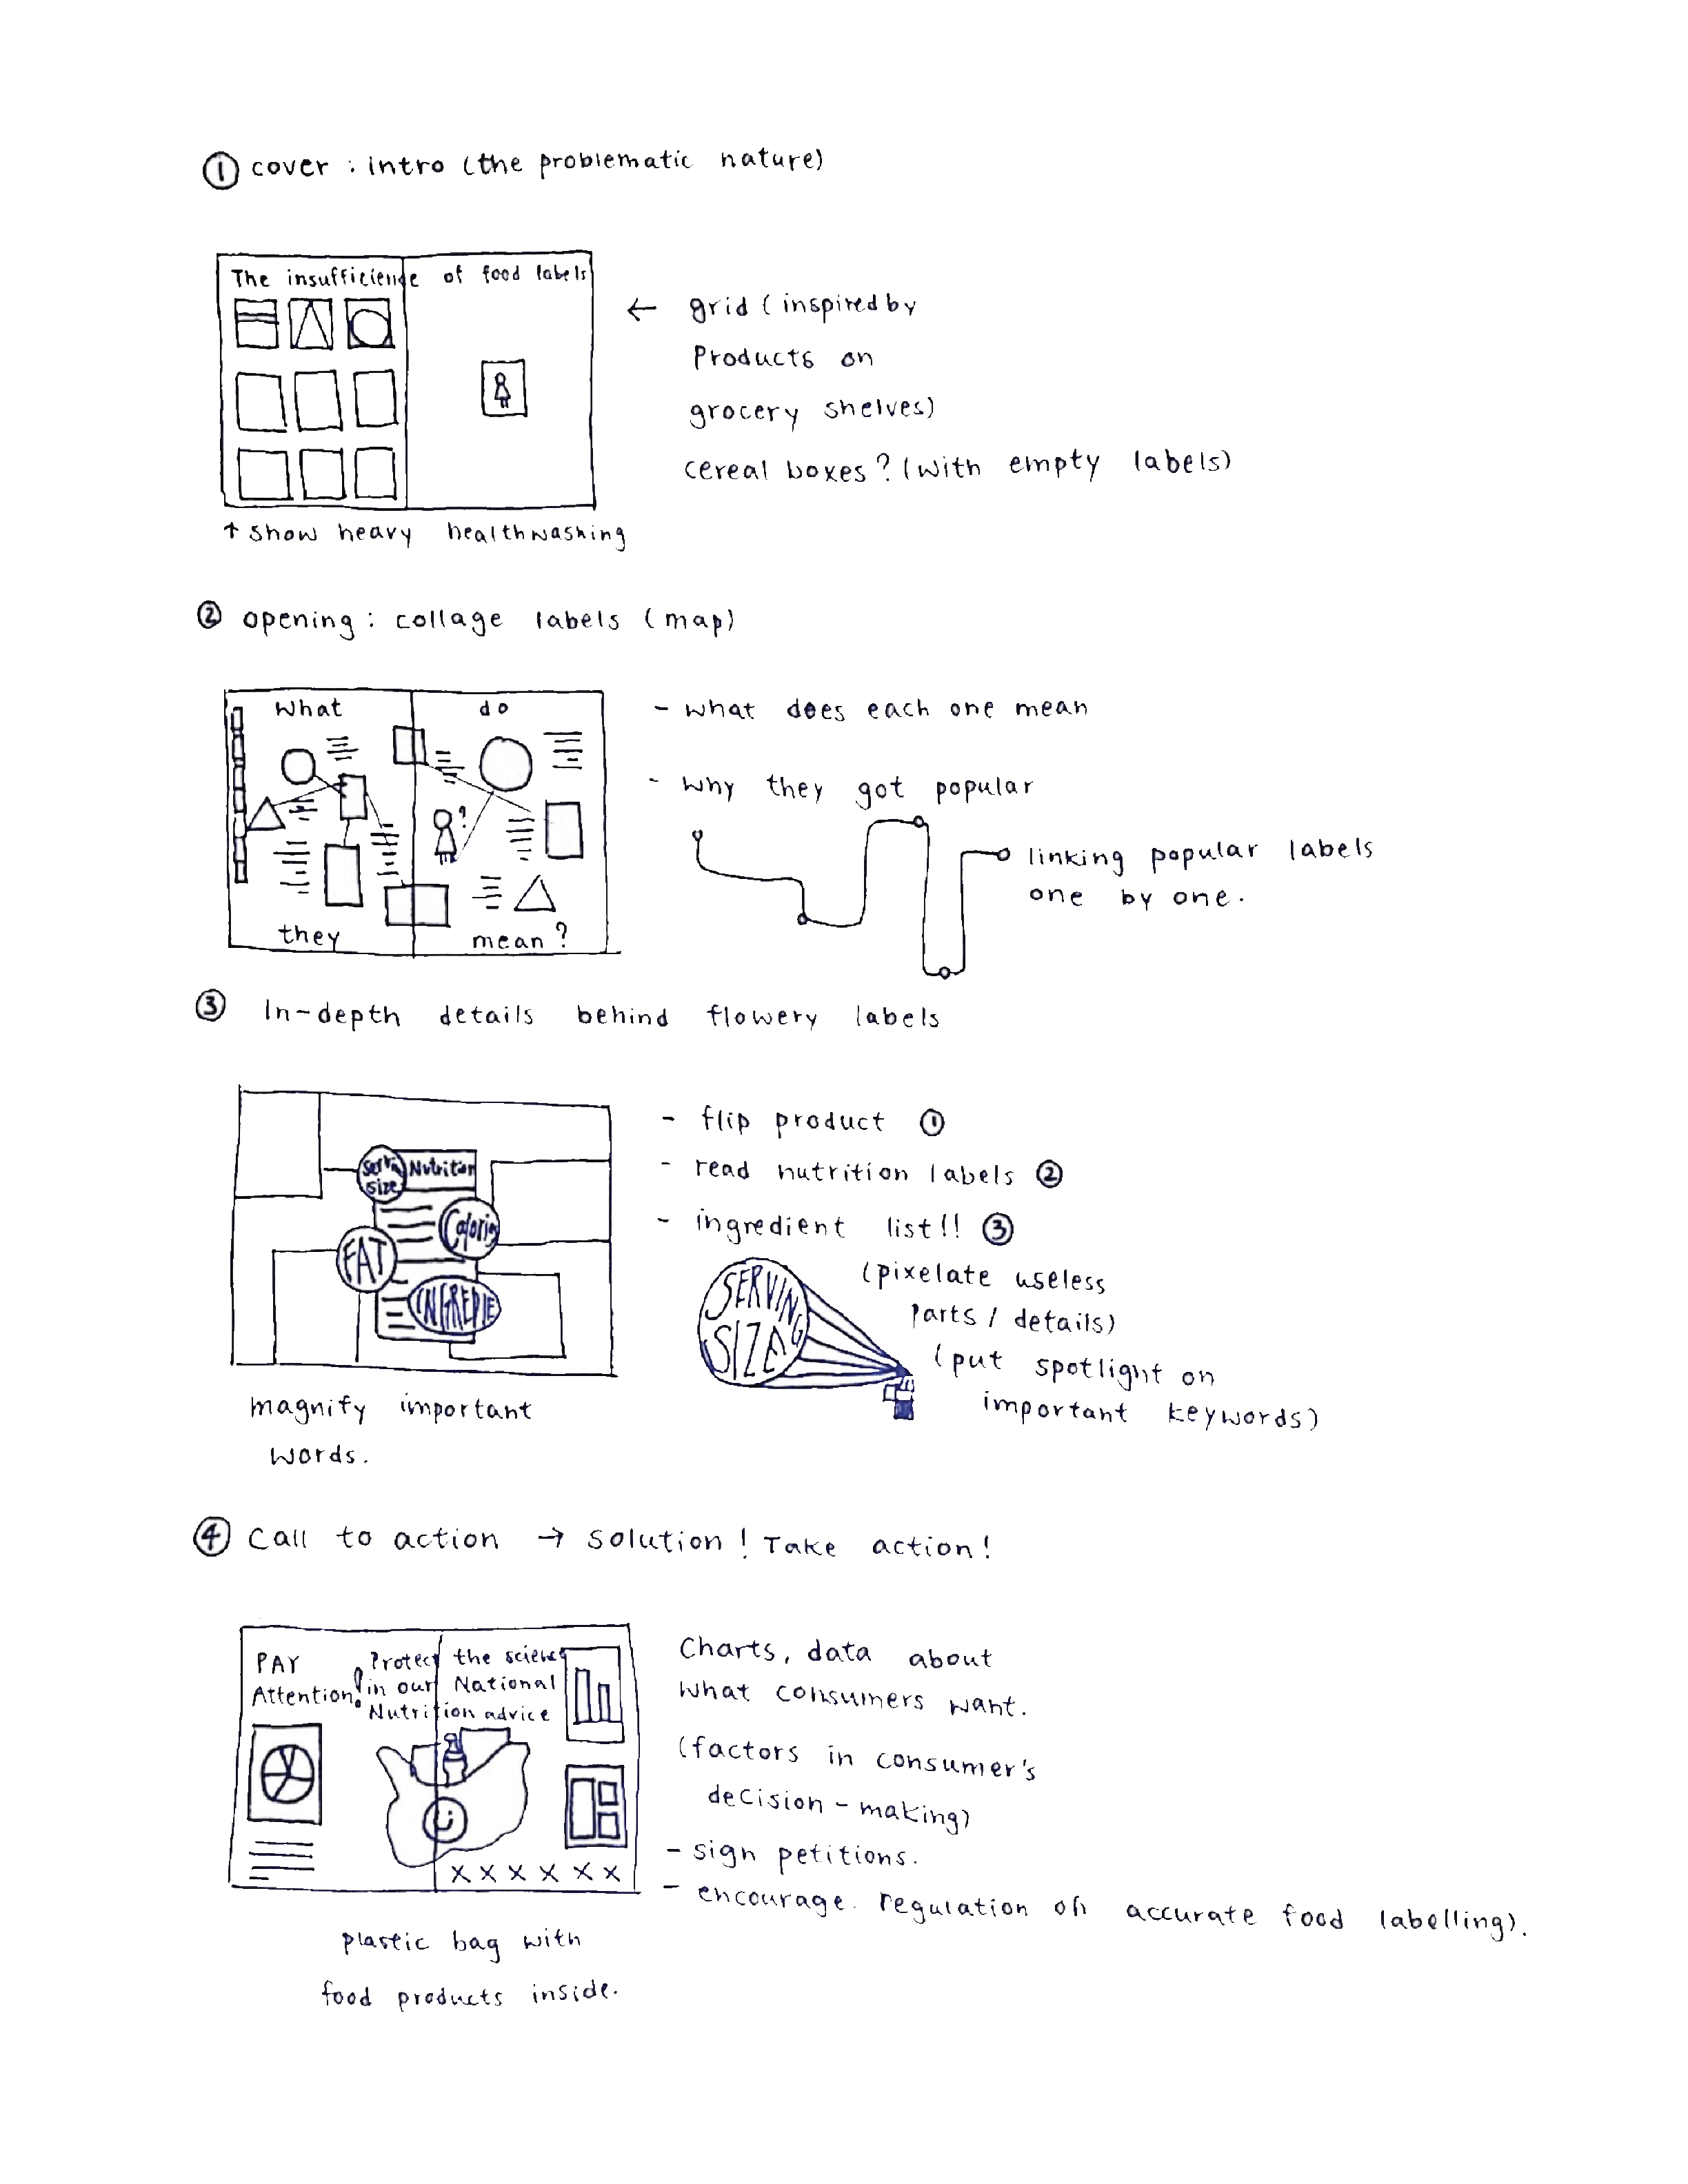 ① cover : intro (the problematic nature)
The insufficience of food labels
← grid (inspired by
Products on
grocery shelves)
cereal boxes? (with empty labels)
↑ show heavy healthwashing
② opening : collage labels (map)
What do
?
they mean?
- what does each one mean
- why they got popular
linking popular labels
one by one.
③ In-depth details behind flowery labels
Servin
size
Nutrition
Calories
FAT
INGREDIE
magnify important
words.
- flip product ①
- read nutrition labels ②
- ingredient list!! ③
(pixelate useless
parts / details)
(put spotlight on
important keywords)
SERVING
SIZE
④ Call to action → solution! Take action!
PAY
Attention!
Protect the science
in our National
Nutrition advice
X X X X X X
plastic bag with
food products inside.
Charts, data about
what consumers want.
(factors in consumer's
decision-making)
- sign petitions.
- encourage. regulation on accurate food labelling).